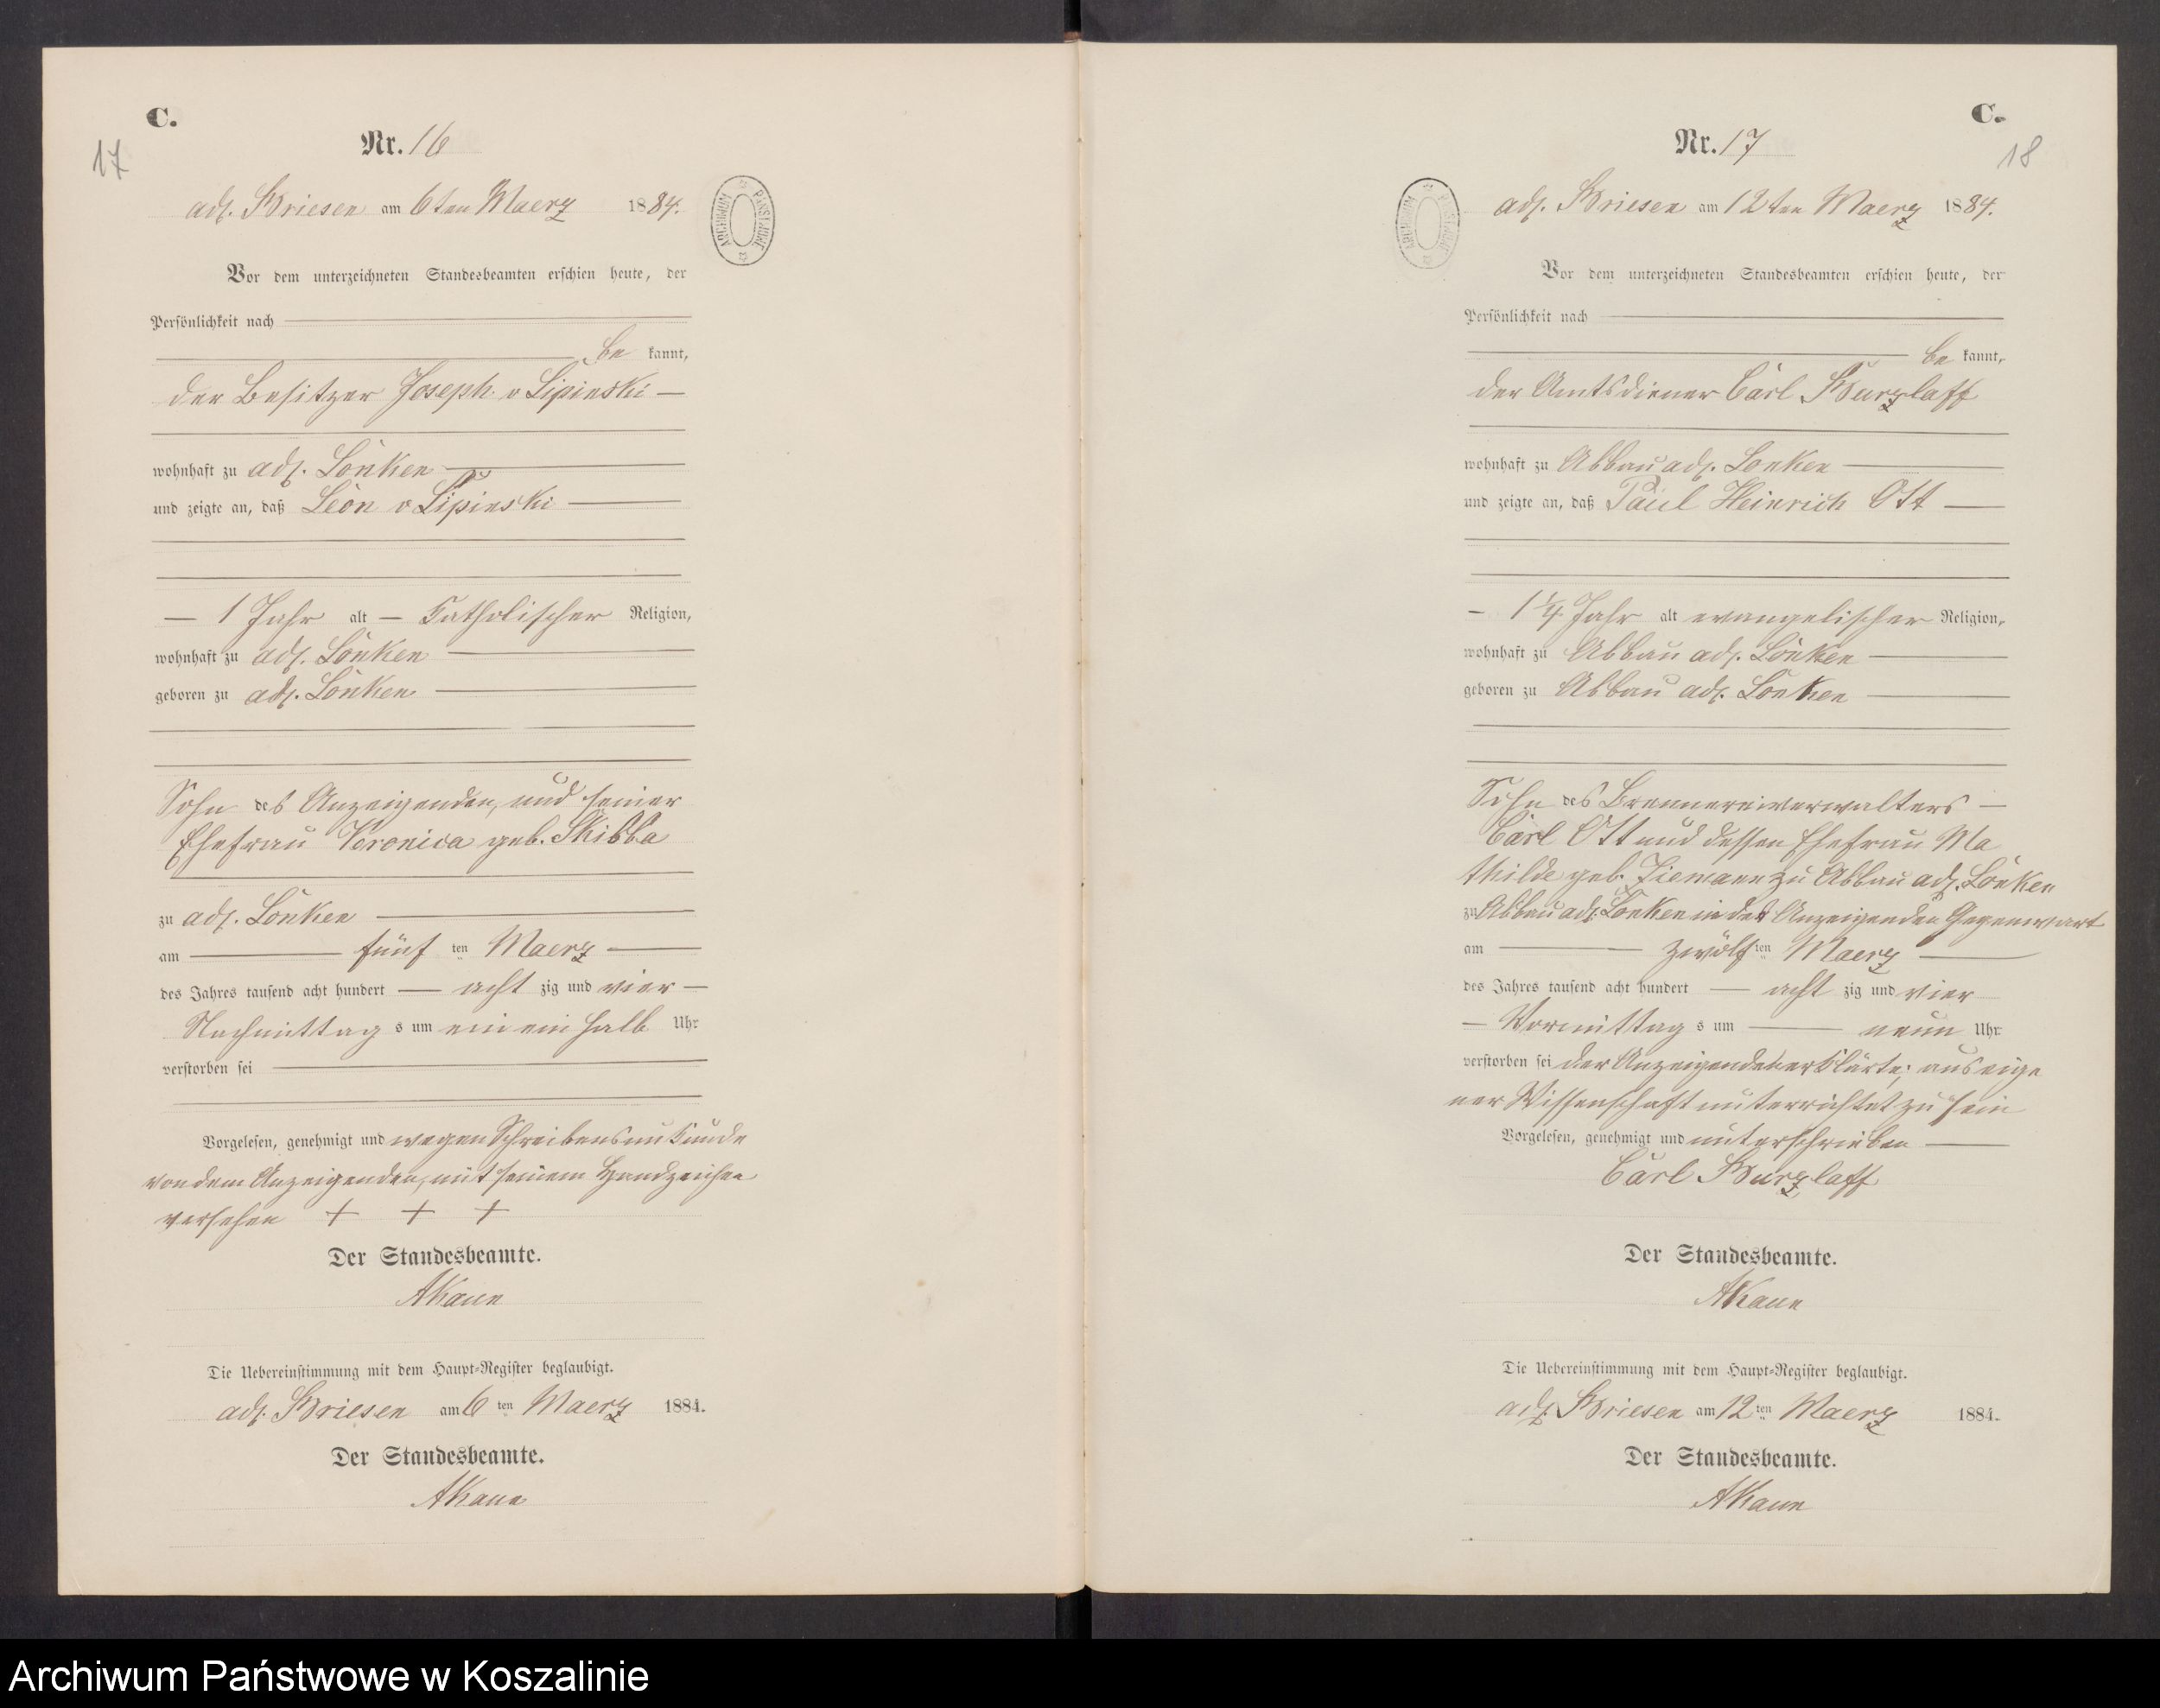 C.
17
Nr. 16
adl. Briesen am 6ten Maerz 1884.
ARCHIWUM PAŃSTWOWE
Vor dem unterzeichneten Standesbeamten erschien heute, der
Persönlichkeit nach
be kannt,
der Besitzer Joseph v Lipinski —
wohnhaft zu adl. Lonken
und zeigte an, daß Leon v Lipinski
— 1 Jahr alt — katholischer Religion,
wohnhaft zu adl. Lonken
geboren zu adl. Lonken
Sohn des Anzeigenden, und seiner
Ehefrau Veronica geb. Skibba
zu adl. Lonken
am fünf ten Maerz
des Jahres tausend acht hundert — acht zig und vier —
Nachmittag s um ein ein halb Uhr
verstorben sei
Vorgelesen, genehmigt und wegen Schreibensunkunde
von dem Anzeigenden, mit seinem Handzeichen
versehen + + +
Der Standesbeamte.
AKaun
Die Uebereinstimmung mit dem Haupt-Register beglaubigt.
adl. Briesen am 6 ten Maerz 1884.
Der Standesbeamte.
AKaun
C.
18
Nr. 17
adl. Briesen am 12ten Maerz 1884.
ARCHIWUM PAŃSTWOWE
Vor dem unterzeichneten Standesbeamten erschien heute, der
Persönlichkeit nach
be kannt,
der Amtsdiener Carl Burzlaff
wohnhaft zu Abbau adl. Lonken
und zeigte an, daß Paul Heinrich Ott
— 1 1/4 Jahr alt evangelischer Religion,
wohnhaft zu Abbau adl. Lonken
geboren zu Abbau adl. Lonken
Sohn des Brennereiverwalters —
Carl Ott und dessen Ehefrau Ma
thilde geb. Ziemann zu Abbau adl. Lonken
zu Abbau adl. Lonken in des Anzeigenden Gegenwart
am zwölf ten Maerz
des Jahres tausend acht hundert — acht zig und vier
— Vormittag s um neun Uhr
verstorben sei der Anzeigende erklärte; aus eige
ner Wissenschaft unterrichtet zu sein
Vorgelesen, genehmigt und unterschrieben
Carl Burzlaff
Der Standesbeamte.
AKaun
Die Uebereinstimmung mit dem Haupt-Register beglaubigt.
adl. Briesen am 12 ten Maerz 1884.
Der Standesbeamte.
AKaun
Archiwum Państwowe w Koszalinie